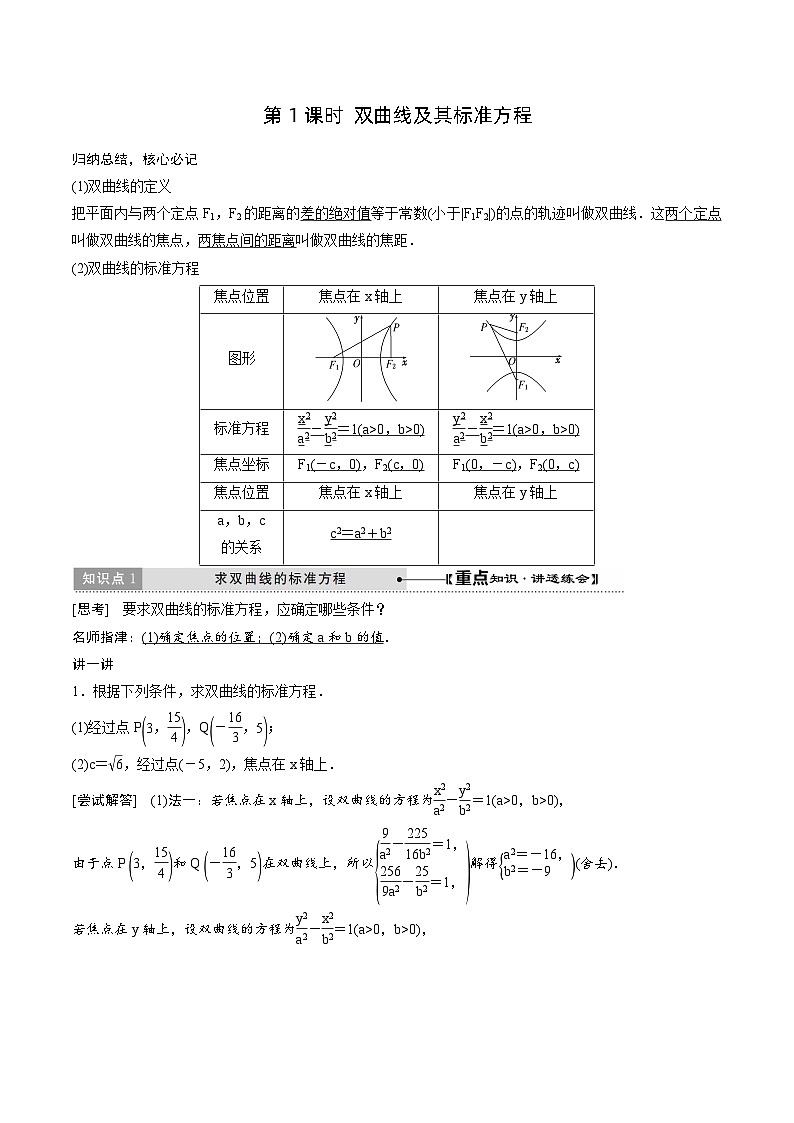 第 1 课时 双曲线及其标准方程
归纳总结，核心必记
(1)双曲线的定义
把平面内与两个定点 F₁，F₂的距离的差的绝对值等于常数(小于|F₁F₂|)的点的轨迹叫做双曲线．这两个定点
叫做双曲线的焦点，两焦点间的距离叫做双曲线的焦距．
(2)双曲线的标准方程
焦点位置 焦点在 x 轴上 焦点在 y 轴上
图形 y P F₁ O F₂ x y P F₂ O x F₁
标准方程 x²/a²－y²/b²=1(a>0，b>0) y²/a²－x²/b²=1(a>0，b>0)
焦点坐标 F₁(－c，0)，F₂(c，0) F₁(0，－c)，F₂(0，c)
焦点位置 焦点在 x 轴上 焦点在 y 轴上
a，b，c
的关系 c²＝a²＋b²
知识点 1 求双曲线的标准方程 重点知识·讲透练会
[思考] 要求双曲线的标准方程，应确定哪些条件？
名师指津：(1)确定焦点的位置；(2)确定 a 和 b 的值．
讲一讲
1．根据下列条件，求双曲线的标准方程．
(1)经过点 P(3，15/4)，Q(－16/3，5)；
(2)c＝√6，经过点(－5，2)，焦点在 x 轴上．
[尝试解答] (1)法一：若焦点在 x 轴上，设双曲线的方程为x²/a²－y²/b²=1(a>0，b>0)，
由于点 P (3，15/4)和 Q (－16/3，5)在双曲线上，所以{9/a²－225/16b²=1，256/9a²－25/b²=1，}解得{a²＝－16，b²＝－9 }(舍去)．
若焦点在 y 轴上，设双曲线的方程为y²/a²－x²/b²=1(a>0，b>0)，